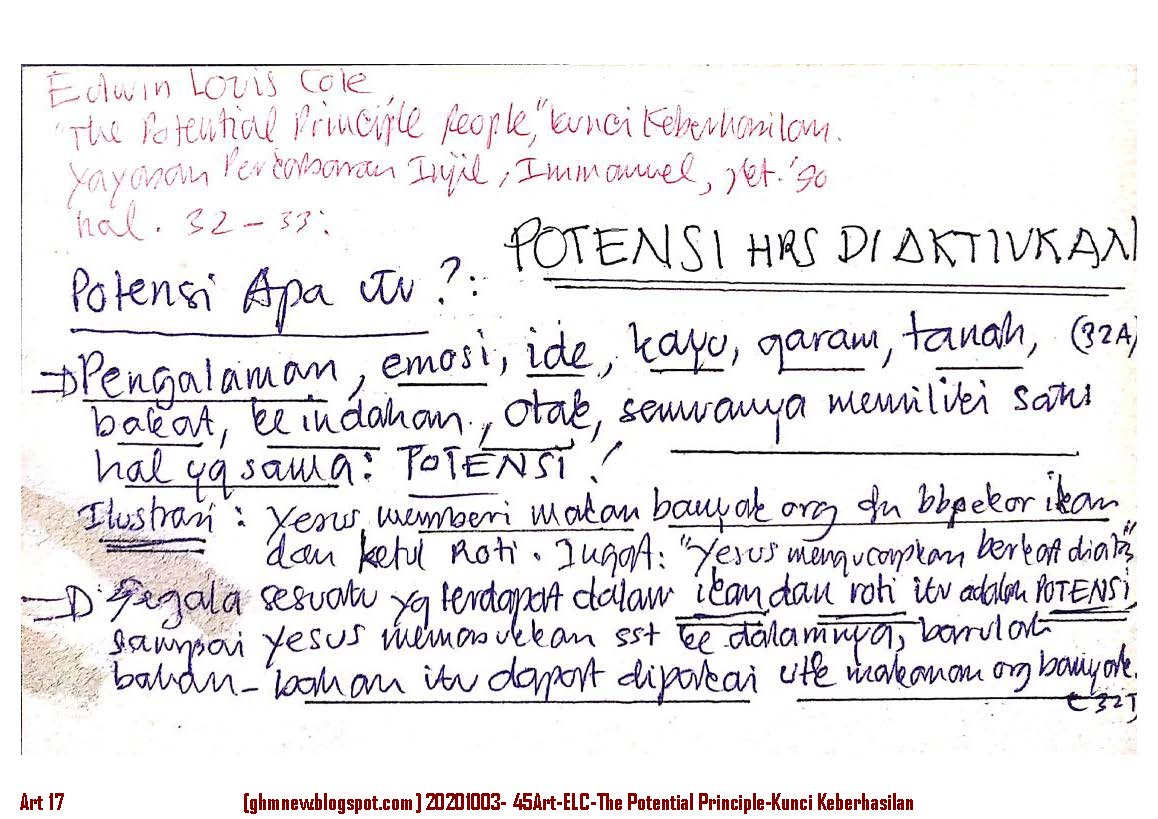 Edwin Louis Cole,
"The Potential Principle People," Kunci Keberhasilan.
Yayasan Perkabaran Injil, Immanuel, Jkt. '90
hal. 32 – 33:
POTENSI HRS DI AKTIVKAN
Potensi Apa itu ?:
Pengalaman, emosi, ide, kayu, garam, tanah, (32A)
bakat, keindahan, otak, semuanya memiliki satu
hal yg sama: POTENSI!
Ilustrasi: Yesus memberi makan banyak org dn bbp ekor ikan
dan ketul Roti. Ingat: "Yesus mengucapkan berkat diats"
Segala sesuatu yg terdapat dalam ikan dan roti itu adalah POTENSI
sampai Yesus memasukkan sst ke dalamnya, barulah
bahan-bahan itu dapat dipakai utk makanan org banyak.
(32T)
Art 17 (ghmnew.blogspot.com) 20201003- 45Art-ELC-The Potential Principle-Kunci Keberhasilan